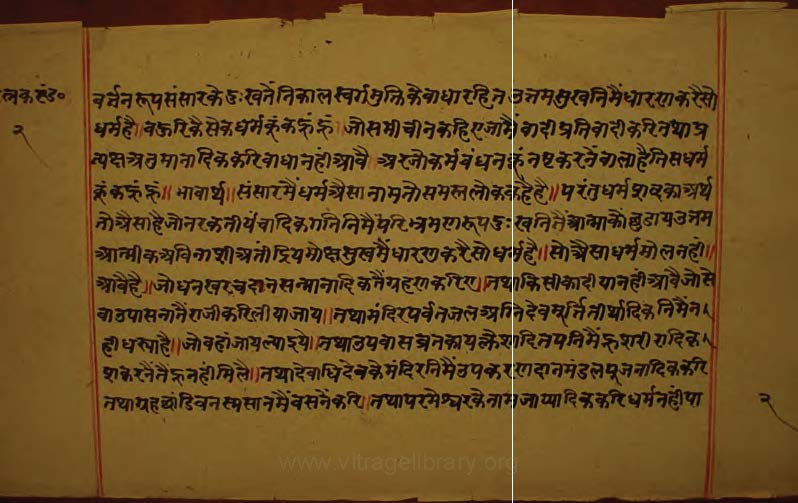 त्नकरंड०
२
वर्त्तनरूपसंसारकेदुःखतैंनिकालस्वर्गमुक्तिकेवाधारहितउत्तमसुखनिमैंधारणकरैसो
धर्महै॥वऊरिकैसेकधर्मकूंकऊंहूं॥जोसमीचीनकहिएजामैंवादीप्रतिवादीकरितथाप्र
त्यक्षअनुमानादिककरिवाधानहींआवै॥अरजोकर्मबंधनकूंनष्टकरनेंवालाहैतिसधर्म
कूंकऊंहूं॥भावार्थ॥संसारमैंधर्मऐसानामतोसमस्तलोककहैहै॥परंतुधर्मशब्दकाअर्थ
तोऐसाहैजोनरकतीर्यंचादिकगतिनिमैंपरिभ्रमणरूपदुःखनितैंआत्माकौंछुडायउत्तम
आत्मीकअविनाशीअतींद्रियमोक्षसुखमैंधारणकरैसोधर्महै॥सोऐसाधर्ममोलनहीं॥
आवैहै॥जोधनखरचदानसन्मानादिकतैंग्रहणकरिए॥तथाकिसीकादीयानहींआवैजोसे
वाउपासनातैंराजीकरिलीयाजाय॥तथामंदिरपर्वतजलअग्निदेवमूर्त्तितीर्थादिकनिमैंन।
हीधस्याहै॥जोवहांजायल्याइये॥तथाउपवासव्रतकायक्लेशादितपनिमैंहूशरीरादिक।
शकरनेंतैंहूनहींमिलै॥तथादेवाधिदेवकेमंदिरनिमैंउपकरणदानमंडलपूजनादिककरि
तथाग्रहछांडिवनस्मसानमैंवसनेंकरि॥तथापरमेश्वरकेनामजाप्यादिककरिधर्मनहींपा
२
www.vitragelibrary.org